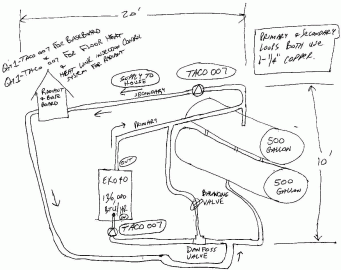 20'
QTY 1-TACO 007 FOR BASEBOARD
QTY 1-TACO 007 FOR FLOOR HEAT
& HEAT LINK INJECTION CONTROL
FOR RADIANT
PRIMARY & SECONDARY
LOOPS BOTH USE
1-1/4" COPPER.
RADIANT &
BASE
BOARD
SUPPLY TO
HOUSE
TACO 007
SECONDARY
PRIMARY
OUT
500
GALLON
10'
EKO 40
136,000
BTU/HR
BALANCING
VALVE
500
GALLON
TACO 007
DANFOSS
VALVE